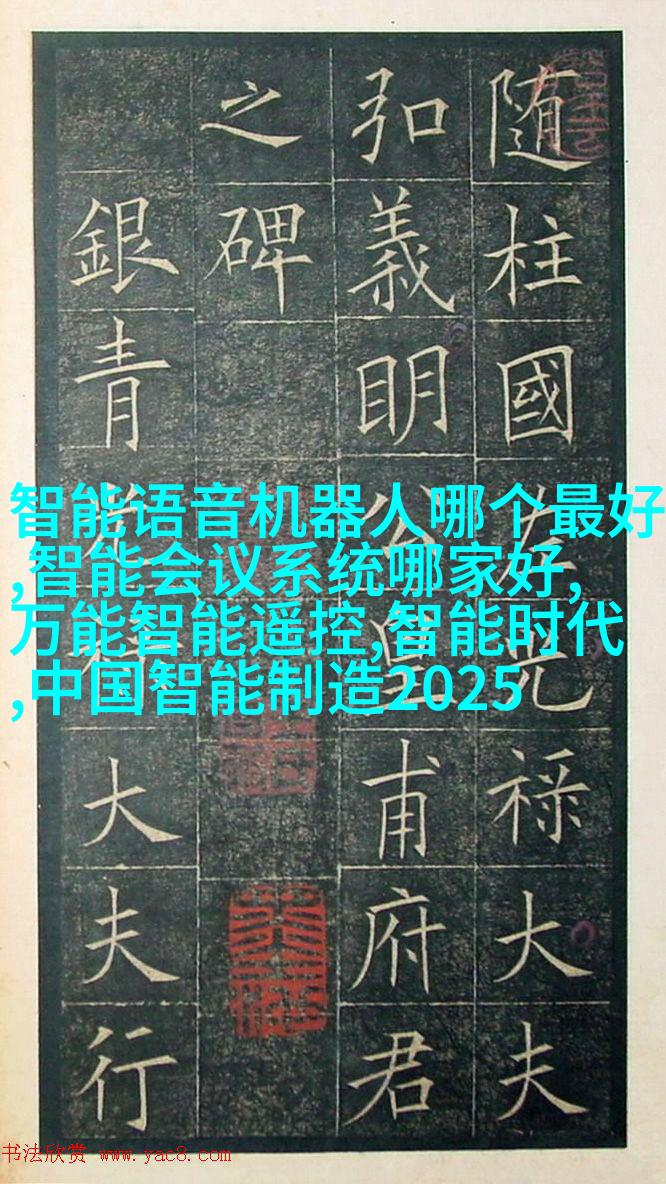 随柱國左光禄大夫
弘義眀公皇甫府君
之碑
銀青光禄大夫行
智能语音机器人哪个最好
,智能会议系统哪家好,
万能智能遥控,智能时代
,中国智能制造2025
书法欣赏 www.yac8.com